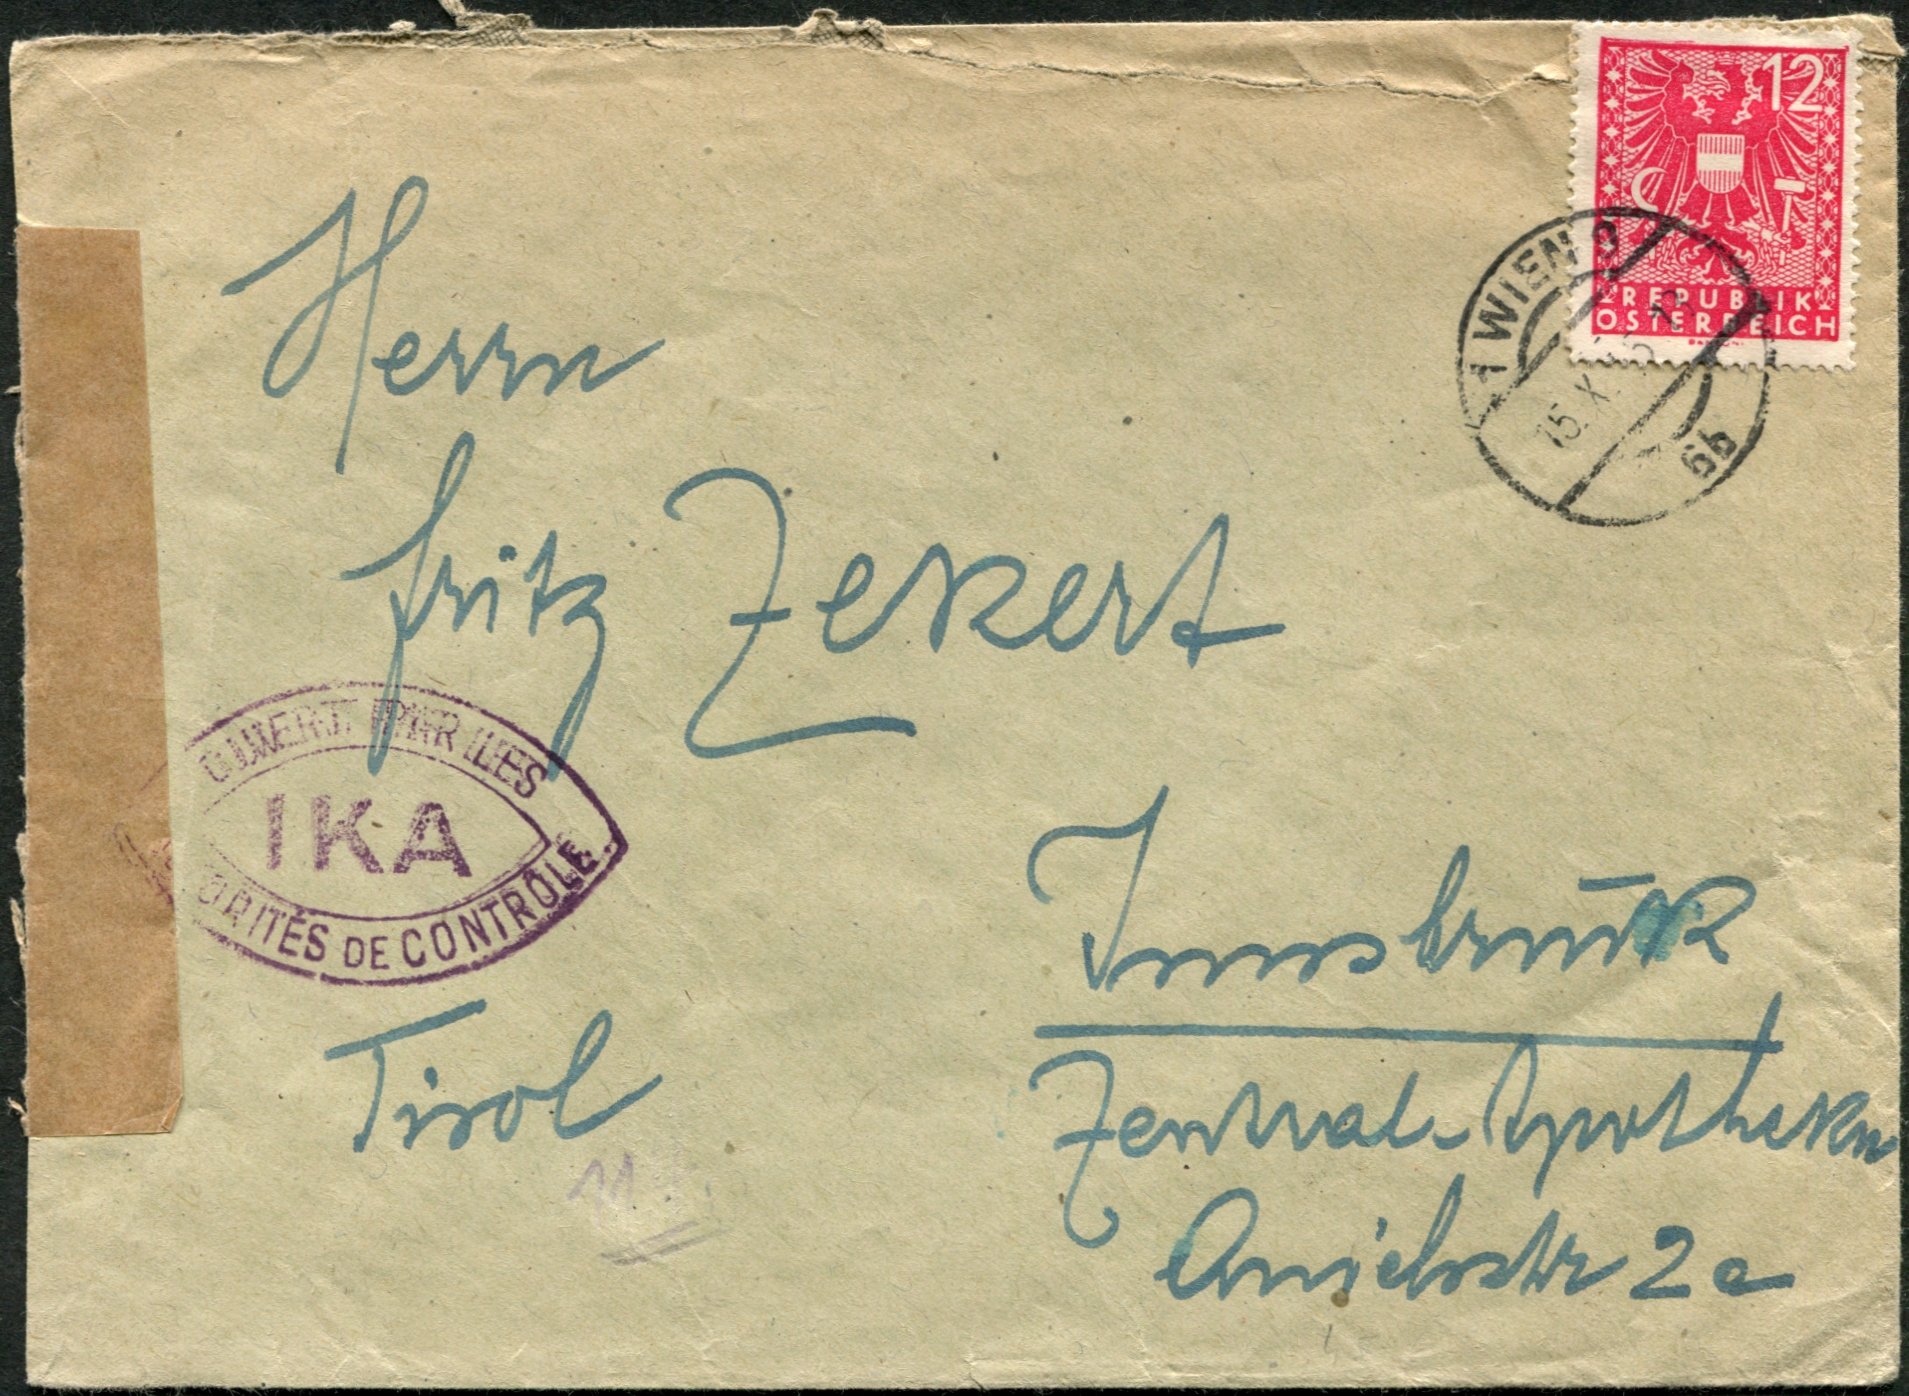 12
REPUBLIK
ÖSTERREICH
1 WIEN 9
15. X. 45
9b
Herrn
Fritz Zekert
OUVERT PAR LES
IKA
ORITÉS DE CONTRÔLE
Innsbruck
Tirol
Zentral-Apotheke
Anichstr 2a